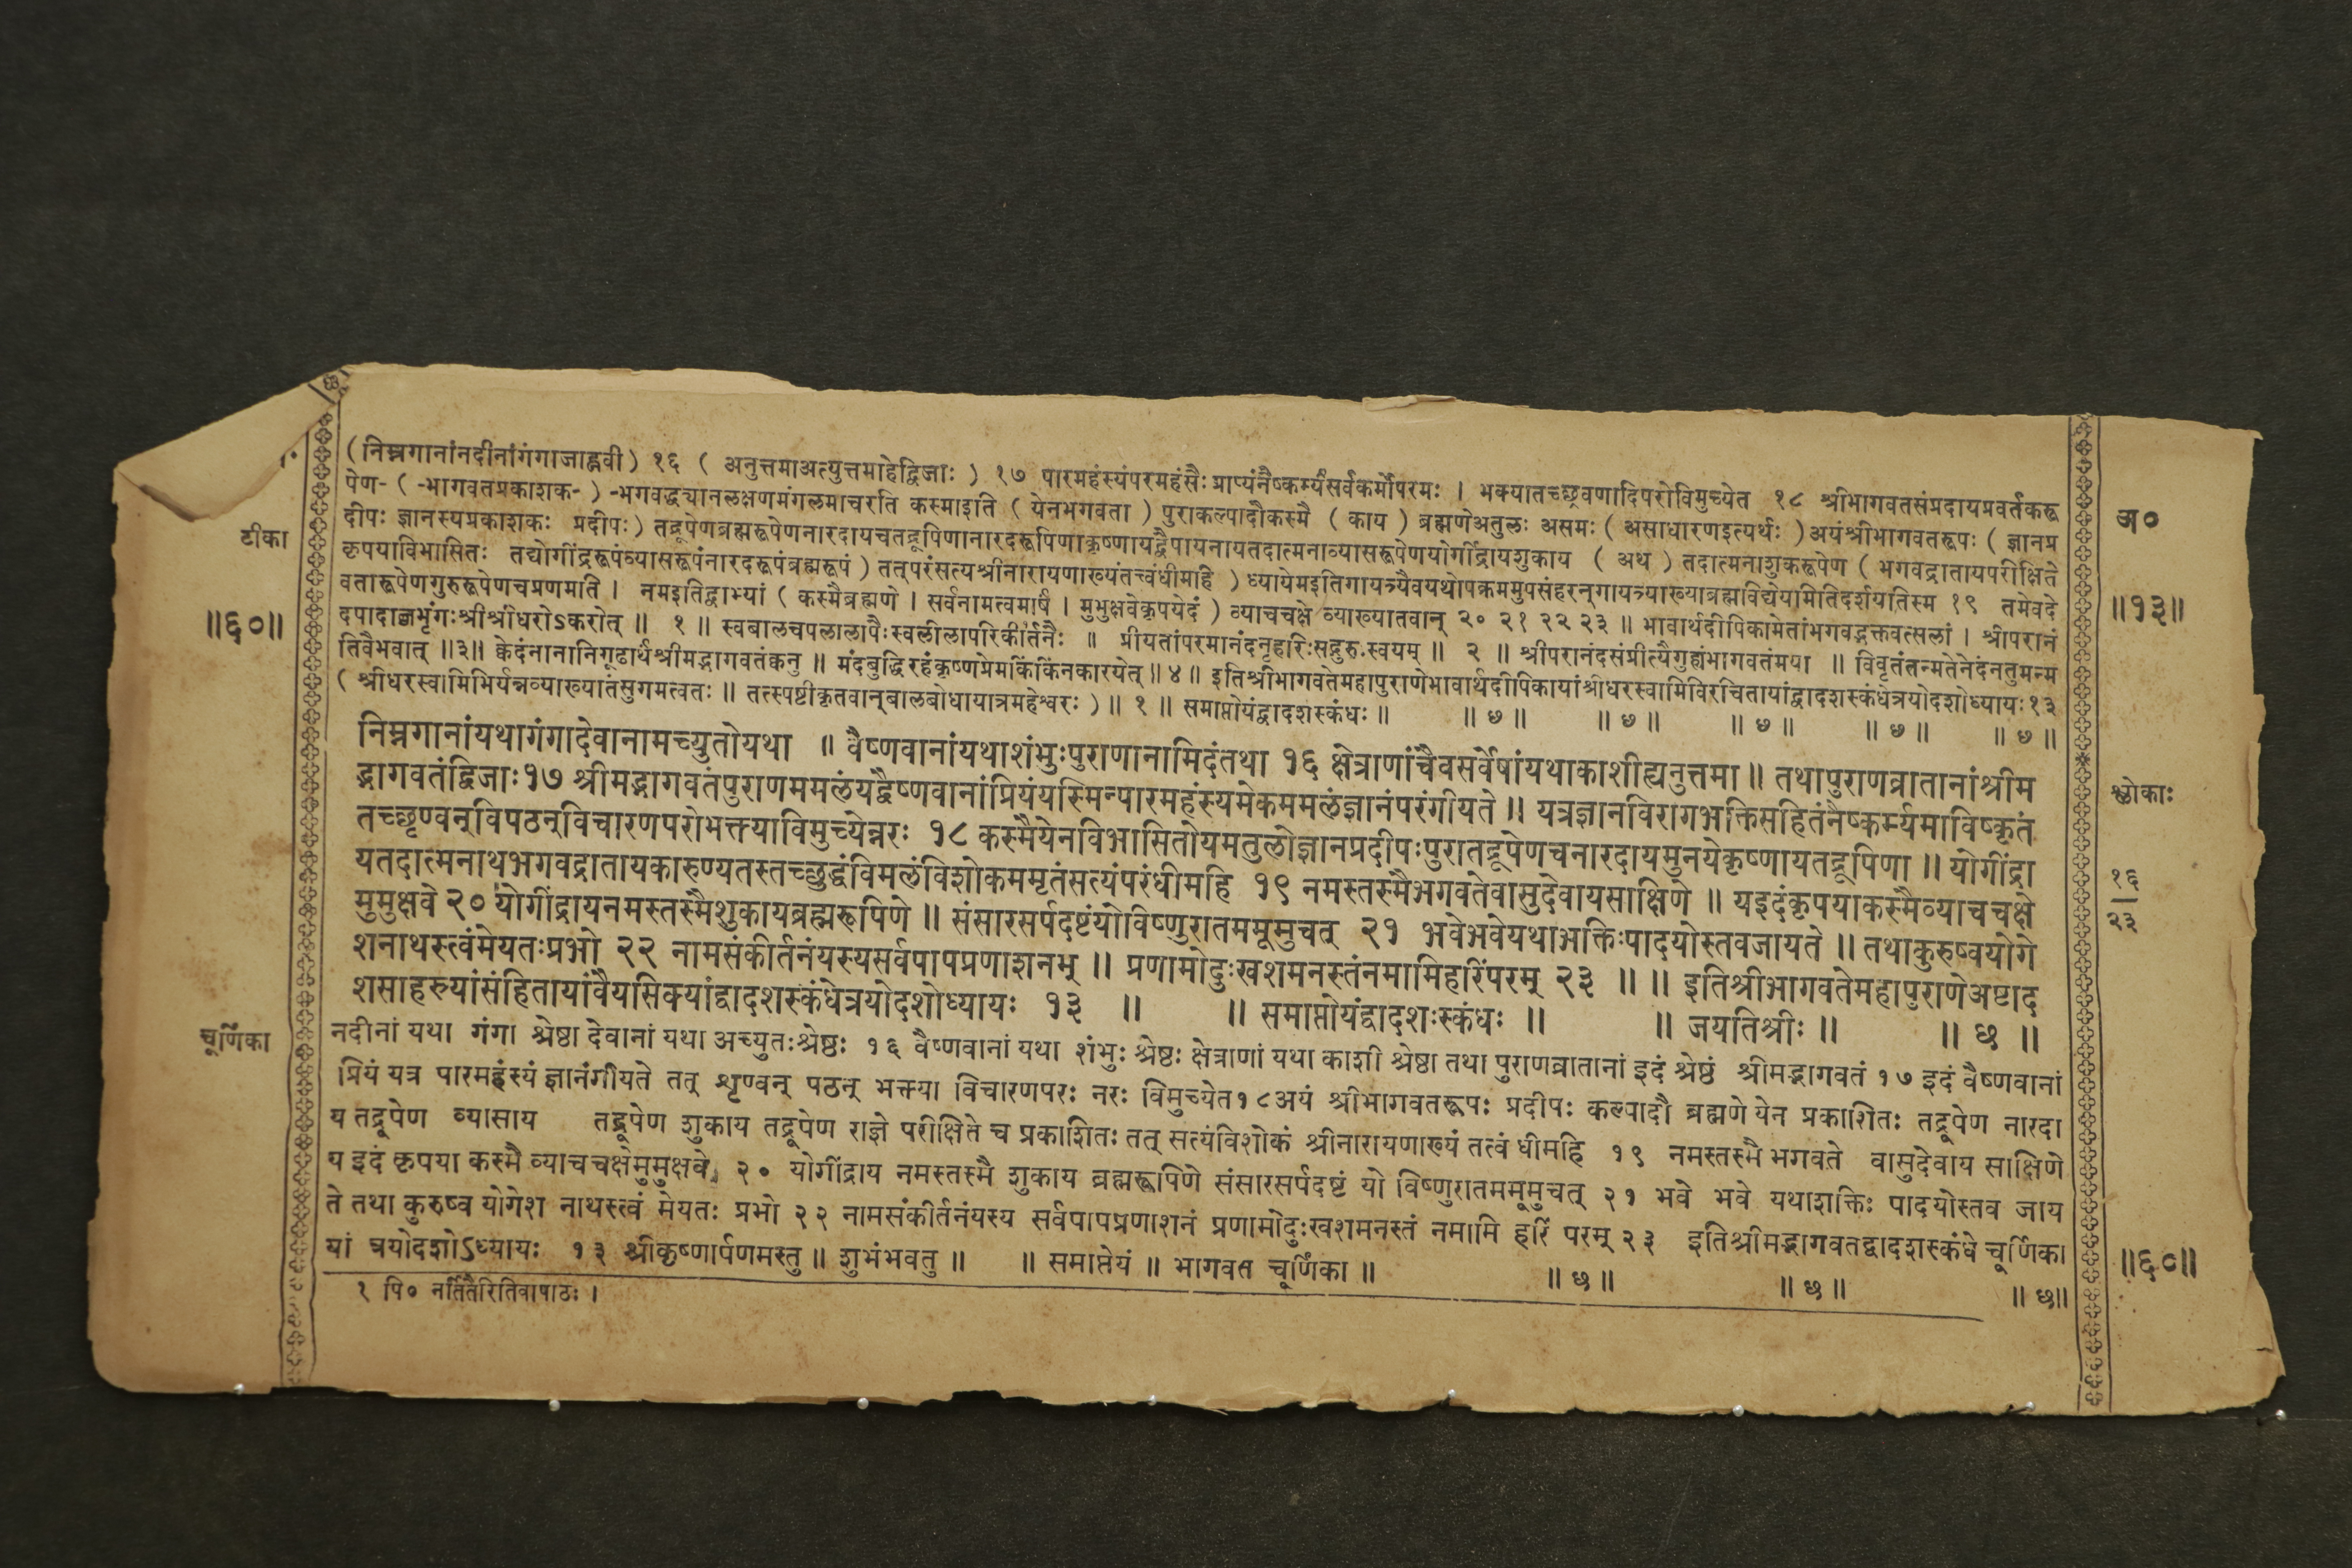 (निम्नगानांनदीनांगंगाजाह्नवी) १६ ( अनुत्तमाअत्युत्तमाहेद्विजाः ) १७ पारमहंस्यंपरमहंसैः प्राप्यंनैष्कर्म्यंसर्वकर्मोपरमः । भक्यातच्छ्रवणादिपरोविमुच्येत १८ श्रीभागवतसंप्रदायप्रवर्तकरू
पेण- ( -भागवतप्रकाशक- ) -भगवद्ध्यानलक्षणमंगलमाचरति कस्माइति ( येनभगवता ) पुराकल्पादौकस्मै ( काय ) ब्रह्मणेअतुलः असमः ( असाधारणइत्यर्थः ) अयंश्रीभागवतरूपः ( ज्ञानप्र
टीका
अ०
दीपः ज्ञानस्यप्रकाशकः प्रदीपः) तद्रूपेणब्रह्मरूपेणनारदायचतद्रूपिणानारदरूपिणाकृष्णायद्वैपायनायतदात्मनाव्यासरूपेणयोगींद्रायशुकाय ( अथ ) तदात्मनाशुकरूपेण ( भगवद्रातायपरीक्षिते
कृपयाविभासितः तद्योगींद्ररूपंव्यासरूपंनारदरूपंब्रह्मरूपं ) तत्परंसत्यश्रीनारायणाख्यंतत्त्वंधीमहि ) ध्यायेमइतिगायत्र्यैवयथोपक्रममुपसंहरन्गायत्र्याख्याब्रह्मविद्येयमितिदर्शयतिस्म १९ तमेवदे
वतारूपेणगुरुरूपेणचप्रणमति । नमइतिद्वाभ्यां ( कस्मैब्रह्मणे । सर्वनामत्वमार्षं । मुमुक्षवेकृपयेदं ) व्याचचक्षे व्याख्यातवान् २० २१ २२ २३ ॥ भावार्थदीपिकामेतांभगवद्भक्तवत्सलां । श्रीपरानं
॥६०॥
॥१३॥
दपादाब्जभृंगःश्रीश्रीधरोऽकरोत् ॥ १ ॥ स्वबालचपलालापैःस्वलीलापरिकीर्तनैः ॥ प्रीयतांपरमानंदनृहरिःसद्गुरुःस्वयम् ॥ २ ॥ श्रीपरानंदसंप्रीत्यैगुह्यंभागवतंमया ॥ विवृतंतन्मतेनेदंनतुमन्म
तिवैभवात् ॥३॥ क्वेदंनानानिगूढार्थंश्रीमद्भागवतंक्वनु ॥ मंदबुद्धिरहंकृष्णप्रेमकिंकिंनकारयेत् ॥ ४ ॥ इतिश्रीभागवतेमहापुराणेभावार्थदीपिकायांश्रीधरस्वामिविरचितायांद्वादशस्कंधेत्रयोदशोध्यायः १३
( श्रीधरस्वामिभिर्यन्नव्याख्यातंसुगमत्वतः ॥ तत्स्पष्टीकृतवान्बालबोधायात्रमहेश्वरः ) ॥ १ ॥ समाप्तोयंद्वादशस्कंधः ॥ ॥ ७ ॥ ॥ ७ ॥ ॥ ७ ॥ ॥ ७ ॥ ॥ ७ ॥
निम्नगानांयथागंगादेवानामच्युतोयथा ॥ वैष्णवानांयथाशंभुःपुराणानामिदंतथा १६ क्षेत्राणांचैवसर्वेषांयथाकाशीह्यनुत्तमा ॥ तथापुराणव्रातानांश्रीम
द्भागवतंद्विजाः१७ श्रीमद्भागवतंपुराणममलंयद्वैष्णवानांप्रियंयस्मिन्पारमहंस्यमेकममलंज्ञानंपरंगीयते ॥ यत्रज्ञानविरागभक्तिसहितंनैष्कर्म्यमाविष्कृतं
श्लोकाः
तच्छृण्वन्विपठन्विचारणपरोभक्त्याविमुच्येन्नरः १८ कस्मैयेनविभासितोयमतुलोज्ञानप्रदीपःपुरातद्रूपेणचनारदायमुनयेकृष्णायतद्रूपिणा ॥ योगींद्रा
यतदात्मनाथभगवद्रातायकारुण्यतस्तच्छुद्धंविमलंविशोकममृतंसत्यंपरंधीमहि १९ नमस्तस्मैभगवतेवासुदेवायसाक्षिणे ॥ यइदंकृपयाकस्मैव्याचचक्षे
१६
२३
मुमुक्षवे २० योगींद्रायनमस्तस्मैशुकायब्रह्मरूपिणे ॥ संसारसर्पदष्टंयोविष्णुरातममूमुचत् २१ भवेभवेयथाभक्तिःपादयोस्तवजायते ॥ तथाकुरुष्वयोगे
शनाथस्त्वंमेयतःप्रभो २२ नामसंकीर्तनंयस्यसर्वपापप्रणाशनम् ॥ प्रणामोदुःखशमनस्तंनमामिहरिंपरम् २३ ॥ ॥ इतिश्रीभागवतेमहापुराणेअष्टाद
शसाहस्र्यांसंहितायांवैयसिक्यांद्वादशस्कंधेत्रयोदशोध्यायः १३ ॥ ॥ समाप्तोयंद्वादशःस्कंधः ॥ ॥ जयतिश्रीः ॥ ॥ छ ॥
चूर्णिका
नदीनां यथा गंगा श्रेष्ठा देवानां यथा अच्युतःश्रेष्ठः १६ वैष्णवानां यथा शंभुः श्रेष्ठः क्षेत्राणां यथा काशी श्रेष्ठा तथा पुराणव्रातानां इदं श्रेष्ठं श्रीमद्भागवतं १७ इदं वैष्णवानां
प्रियं यत्र पारमहंस्यं ज्ञानंगीयते तत् शृण्वन् पठन् भक्त्या विचारणपरः नरः विमुच्येत१८अयं श्रीभागवतरूपः प्रदीपः कल्पादौ ब्रह्मणे येन प्रकाशितः तद्रूपेण नारदा
य तद्रूपेण व्यासाय तद्रूपेण शुकाय तद्रूपेण राज्ञे परीक्षिते च प्रकाशितः तत् सत्यंविशोकं श्रीनारायणाख्यं तत्वं धीमहि १९ नमस्तस्मै भगवते वासुदेवाय साक्षिणे
य इदं कृपया कस्मै व्याचचक्षेमुमुक्षवे २० योगींद्राय नमस्तस्मै शुकाय ब्रह्मरूपिणे संसारसर्पदष्टं यो विष्णुरातममूमुचत् २१ भवे भवे यथाशक्तिः पादयोस्तव जाय
ते तथा कुरुष्व योगेश नाथस्त्वं मेयतः प्रभो २२ नामसंकीर्तनंयस्य सर्वपापप्रणाशनं प्रणामोदुःखशमनस्तं नमामि हरिं परम् २३ इतिश्रीमद्भागवतद्वादशस्कंधे चूर्णिका
यां त्रयोदशोऽध्यायः १३ श्रीकृष्णार्पणमस्तु ॥ शुभंभवतु ॥ ॥ समाप्तेयं ॥ भागवत चूर्णिका ॥ ॥ छ ॥ ॥ छ ॥ ॥ छ॥
॥६०॥
१ पि० नर्तितैरितिवापाठः ।